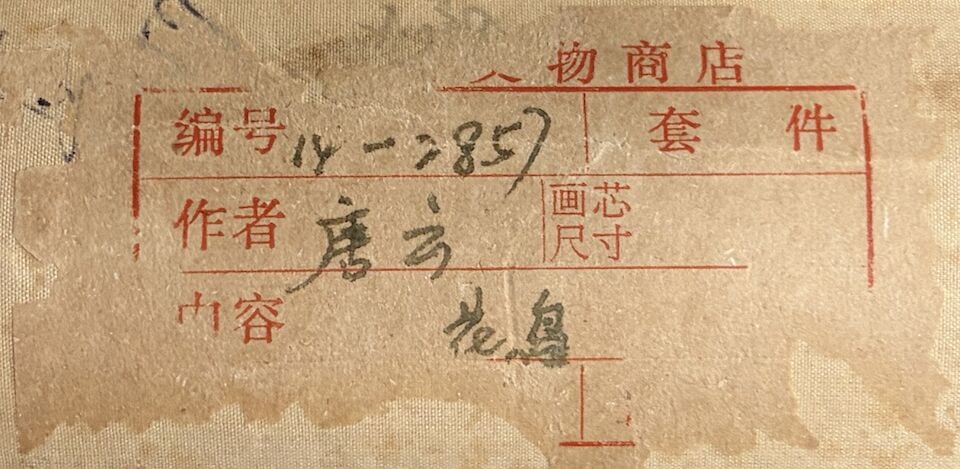 物商店
编号 14-2857 套 件
作者 唐云 画芯
尺寸
内容 花鸟